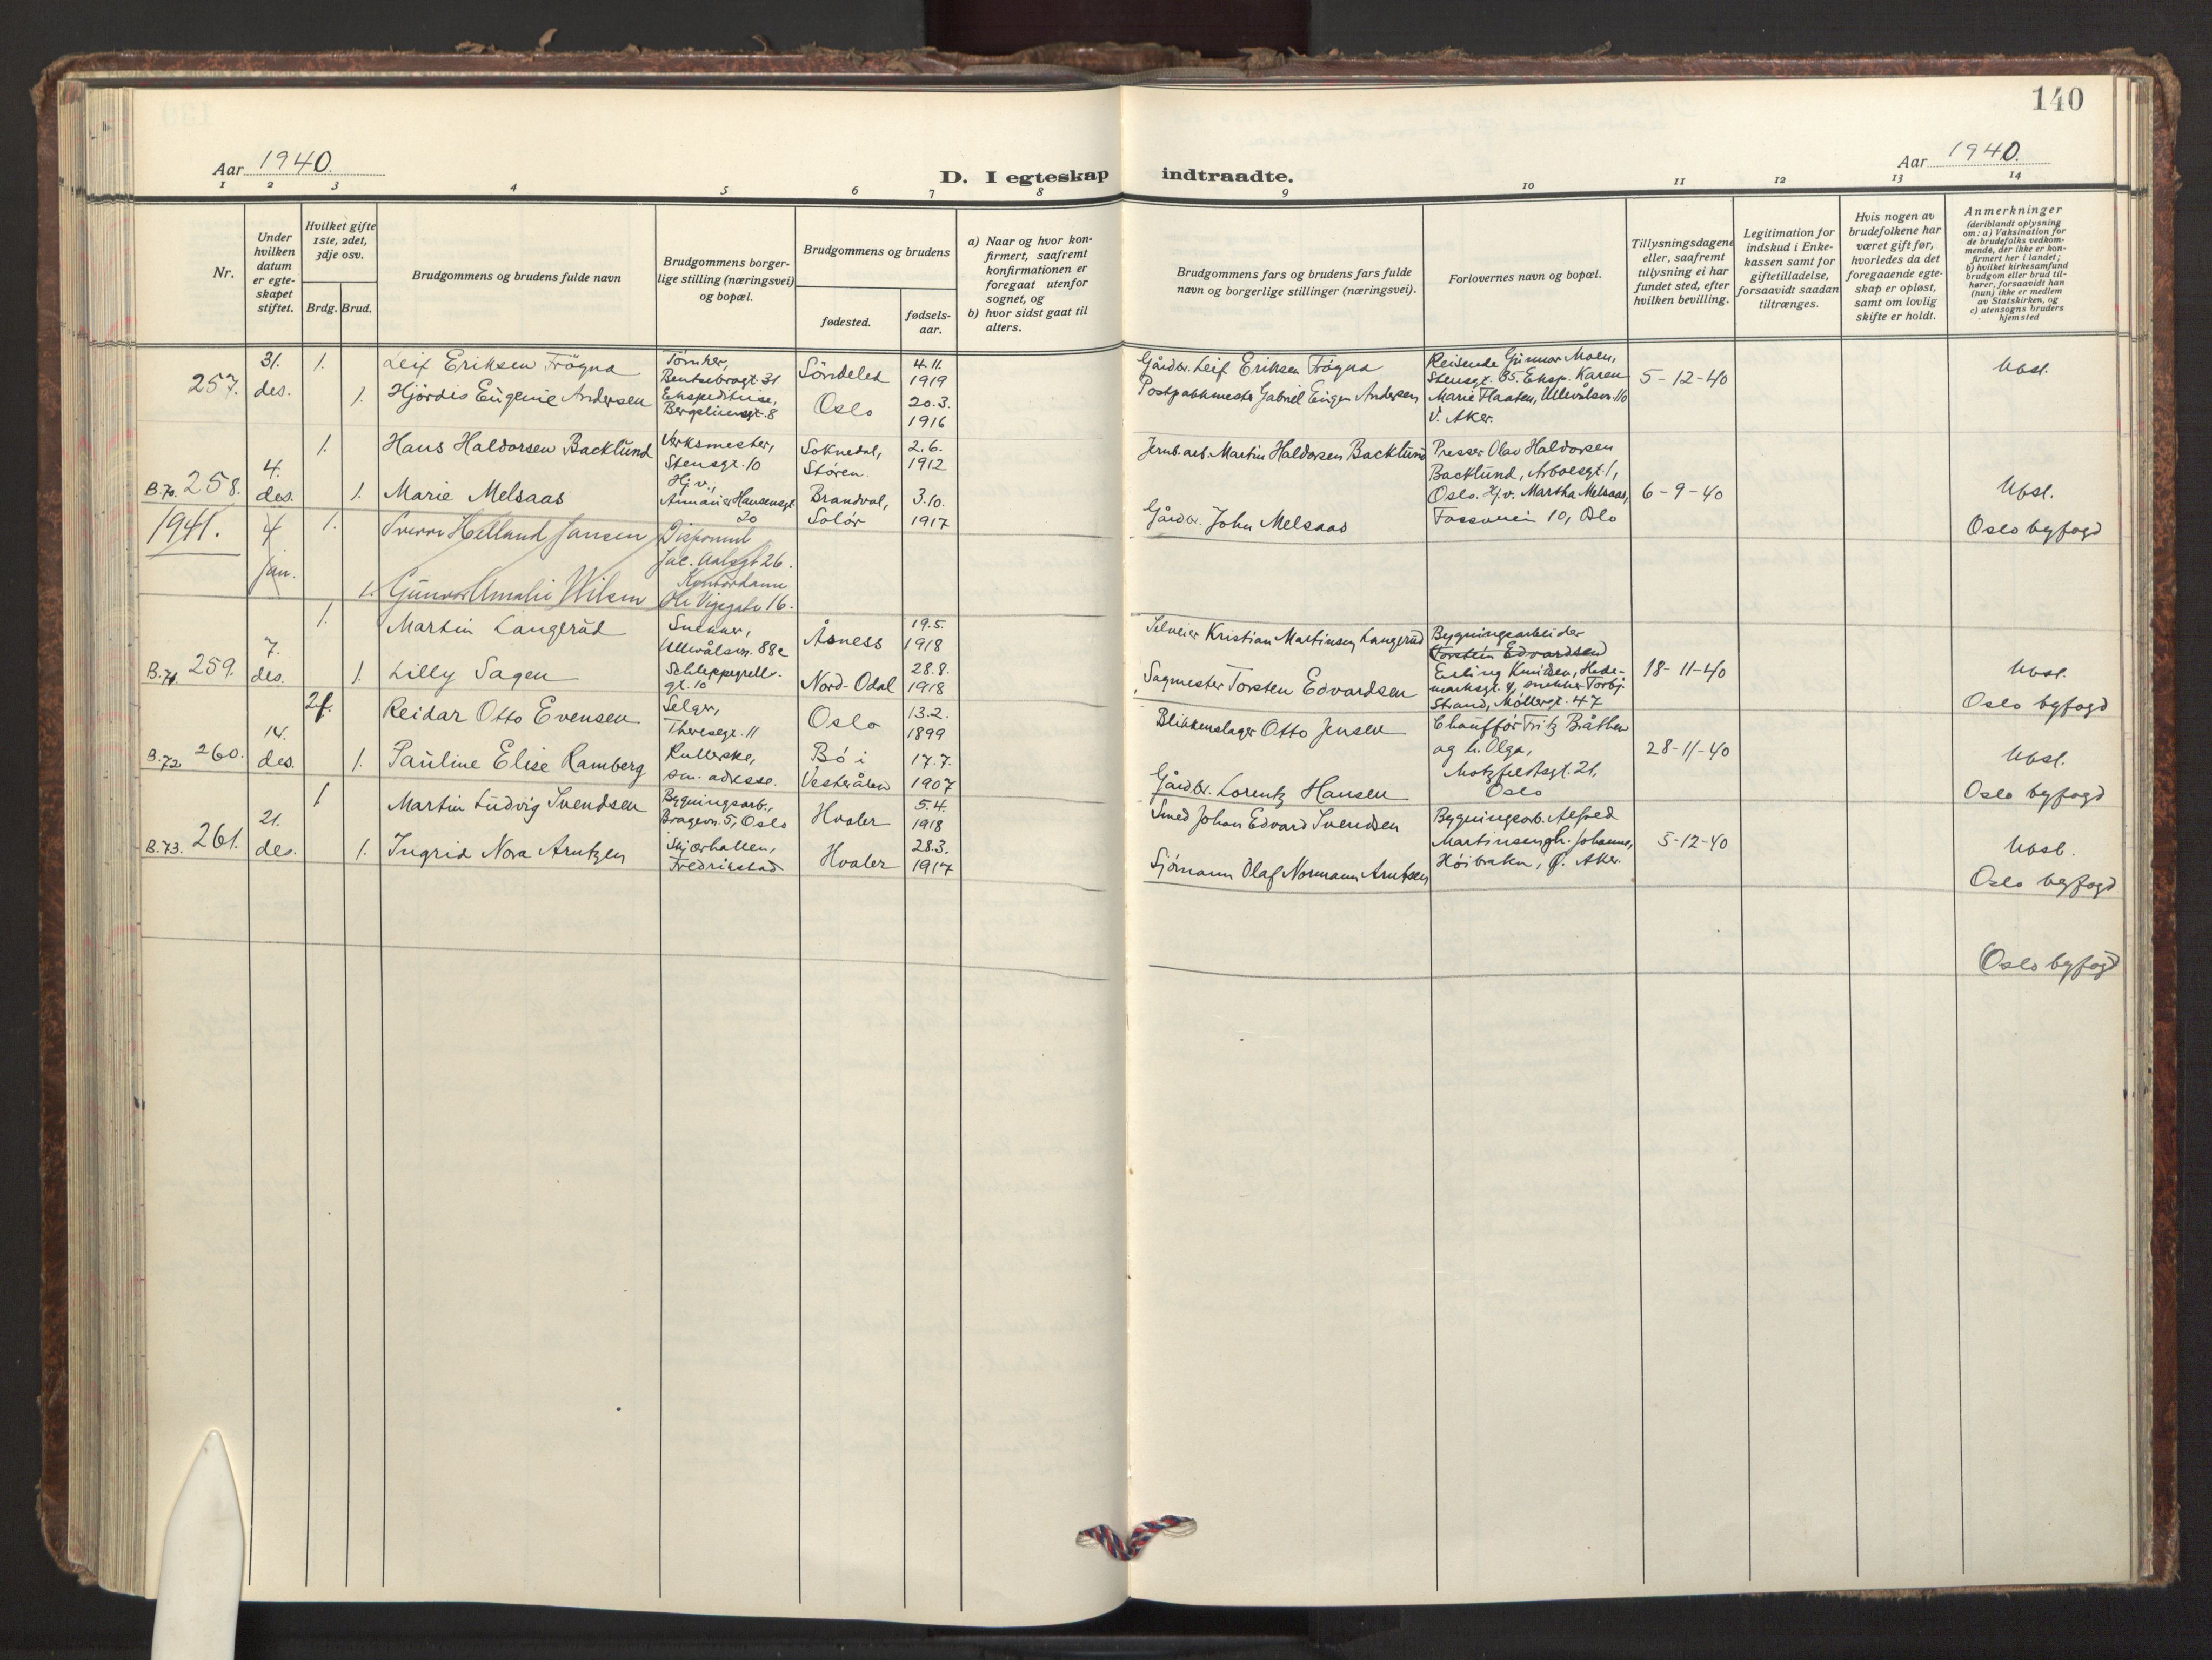 140
Aar 1940.
D. I egteskap indtraadte.
Aar 1940.
1 2 3 4 5 6 7 8 9 10 11 12 13 14
Nr.
Under hvilken datum er egteskapet stiftet.
Hvilket gifte 1ste, 2det, 3dje osv.
Brdg. Brud.
Brudgommens og brudens fulde navn
Brudgommens borgerlige stilling (næringsvei) og bopæl.
Brudgommens og brudens
fødested.
fødselsaar.
a) Naar og hvor konfirmert, saafremt konfirmationen er foregaat utenfor sognet, og
b) hvor sidst gaat til alters.
Brudgommens fars og brudens fars fulde navn og borgerlige stillinger (næringsvei).
Forlovernes navn og bopæl.
Tillysningsdagene eller, saafremt tillysning ei har fundet sted, efter hvilken bevilling.
Legitimation for indskud i Enkekassen samt for giftetilladelse, forsaavidt saadan tiltrænges.
Hvis nogen av brudefolkene har været gift før, hvorledes da det foregaaende egteskap er opløst, samt om lovlig skifte er holdt.
Anmerkninger
(deriblandt oplysning om: a) Vaksination for de brudefolks vedkommende, der ikke er konfirmert her i landet; b) hvilket kirkesamfund brudgom eller brud tilhører, forsaavidt han (hun) ikke er medlem av Statskirken, og c) utensogns bruders hjemsted
257. 31. des.
1. Leif Eriksen Frögna
Bentsebrogt. 31
Söndeled
4.11. 1919
1. Hjördis Eugenie Andersen
Ekspeditrise,
Bergsliensgt. 8
Oslo
20.3. 1916
Gårdbr. Leif Eriksen Frögna
Postpakkmester Gabriel Eugen Andersen
Reisende Gunnar Moen,
Stensgt. 35. Eksp. Karen
Marie Flaaten, Ullevålsvn. 110
V. Aker.
5-12-40
Ubsl.
B.70. 258. 4. des.
1. Hans Haldorsen Backlund
Verksmester,
Stensgt. 10
Soknedal,
Støren.
2.6. 1912
1. Marie Melsaas
Hj.v.,
Armauer Hansensgt
20
Brandval,
Solör
3.10. 1917
Jernb.arb. Martin Haldorsen Backlund
Gårdbr. John Melsaas
Presser Olav Haldorsen
Backlund, Arboesgt. 1,
Oslo. Hj.v. Martha Melsaas,
Fossveien 10, Oslo
6-9-40
Ubsl.
Oslo byfogd
1941. 4 jan.
1. Sverre Helland Jansen
Disponent
Jac. Aalsgt 26.
1. Gunvor Amalie Nilsen
Kontordame
Ole Vigsgate 16.
B.71. 259. 7. des.
1. Martin Langerud
Snekker,
Ullevålsvn. 88c
Åsness
19.5 1918
1. Lilly Sagen
Schleppegrells-
gt. 10
Nord-Odal
28.8. 1918
Selveier Kristian Martinsen Langerud
Sagmester Torsten Edvardsen
Bygningsarbeider
Torstein Edvardsen
Erling Knudsen, Hede-
marksgt. 4, snekker Torbj.
Strand, Møllergt. 47
18-11-40
Ubsl.
Oslo byfogd
B.72 260. 14. des.
2f. Reidar Otto Evensen
Selger,
Theresesgt. 11
Oslo
13.2. 1899
1. Pauline Elise Ramberg
sm. adresse.
Bö i
Vesterålen
17.7. 1907
Blikkenslager Otto Jensen
Gårdbr. Lorentz Hansen
Chauffør Fritz Bråthen
og h. Olga,
Motzfeldtsgt. 21,
Oslo
28-11-40
Ubsl.
Oslo byfogd
B.73. 261. 21. des.
1 Martin Ludvig Svendsen
Bygningsarb.,
Bragevn. 5, Oslo
Hvaler
5.4. 1918
1. Ingrid Nora Arntzen
Skjærhallen,
Fredrikstad
Hvaler
28.3. 1917
Smed Johan Edvard Svendsen
Sjömann Olaf Normann Arntsen
Bygningsarb. Alfred
Martinsen og h. Johanne,
Höibraten, Ø. Aker.
5-12-40
Ubsl.
Oslo byfogd
Oslo byfogd